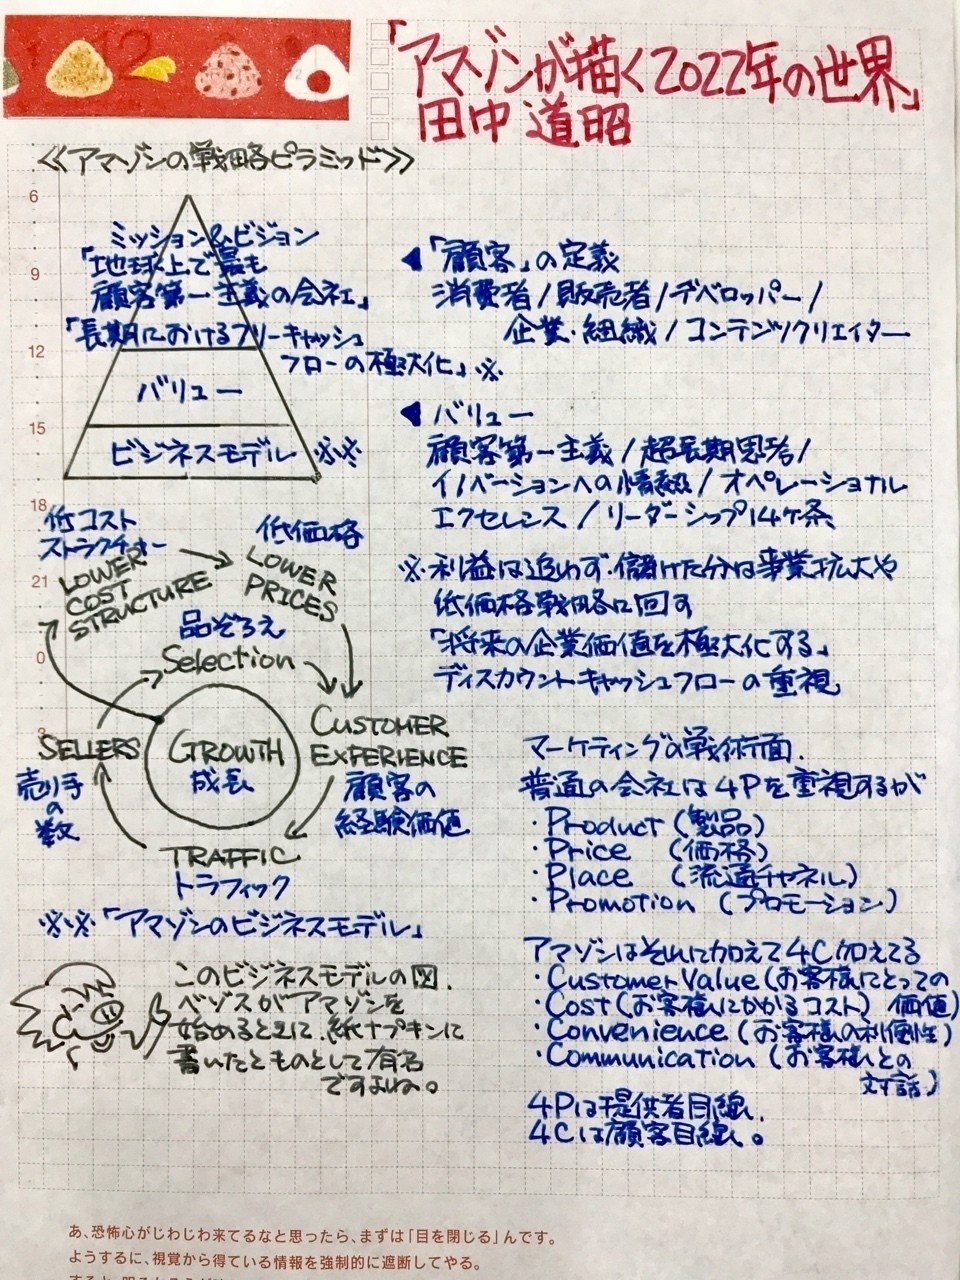 「アマゾンが描く2022年の世界」
田中道昭
《アマゾンの戦略ピラミッド》
6
9
12
15
18
21
0
3
ミッション&ビジョン
「地球上で最も
顧客第一主義の会社」
「長期におけるフリーキャッシュ
フローの極大化」※
バリュー
ビジネスモデル ※※
◀「顧客」の定義
消費者/販売者/デベロッパー/
企業・組織/コンテンツクリエイター
◀バリュー
顧客第一主義/超長期思考/
イノベーションへの情熱/オペレーショナル
エクセレンス/リーダーシップ14ヶ条
※利益は追わず・儲けた分は事業拡大や
低価格戦略に回す
「将来の企業価値を極大化する」
ディスカウントキャッシュフローの重視
低コスト
ストラクチャー
LOWER
COST
STRUCTURE
低価格
LOWER
PRICES
品ぞろえ
Selection
CUSTOMER
EXPERIENCE
顧客の
経験価値
SELLERS
売り手
の
数
GROWTH
成長
TRAFFIC
トラフィック
※※「アマゾンのビジネスモデル」
このビジネスモデルの図、
ベゾスがアマゾンを
始めるときに、紙ナプキンに
書いたとものとして有名
ですよね。
マーケティングの戦術面、
普通の会社は4Pを重視するが
・Product(製品)
・Price (価格)
・Place (流通チャネル)
・Promotion (プロモーション)
アマゾンはそれに加えて4C加えてる
・Customer Value(お客様にとっての
価値)
・Cost(お客様にかかるコスト)
・Convenience(お客様の利便性)
・Communication(お客様との
対話)
4Pは提供者目線、
4Cは顧客目線。
あ、恐怖心がじわじわ来てるなと思ったら、まずは「目を閉じる」んです。
ようするに、視覚から得ている情報を強制的に遮断してやる。